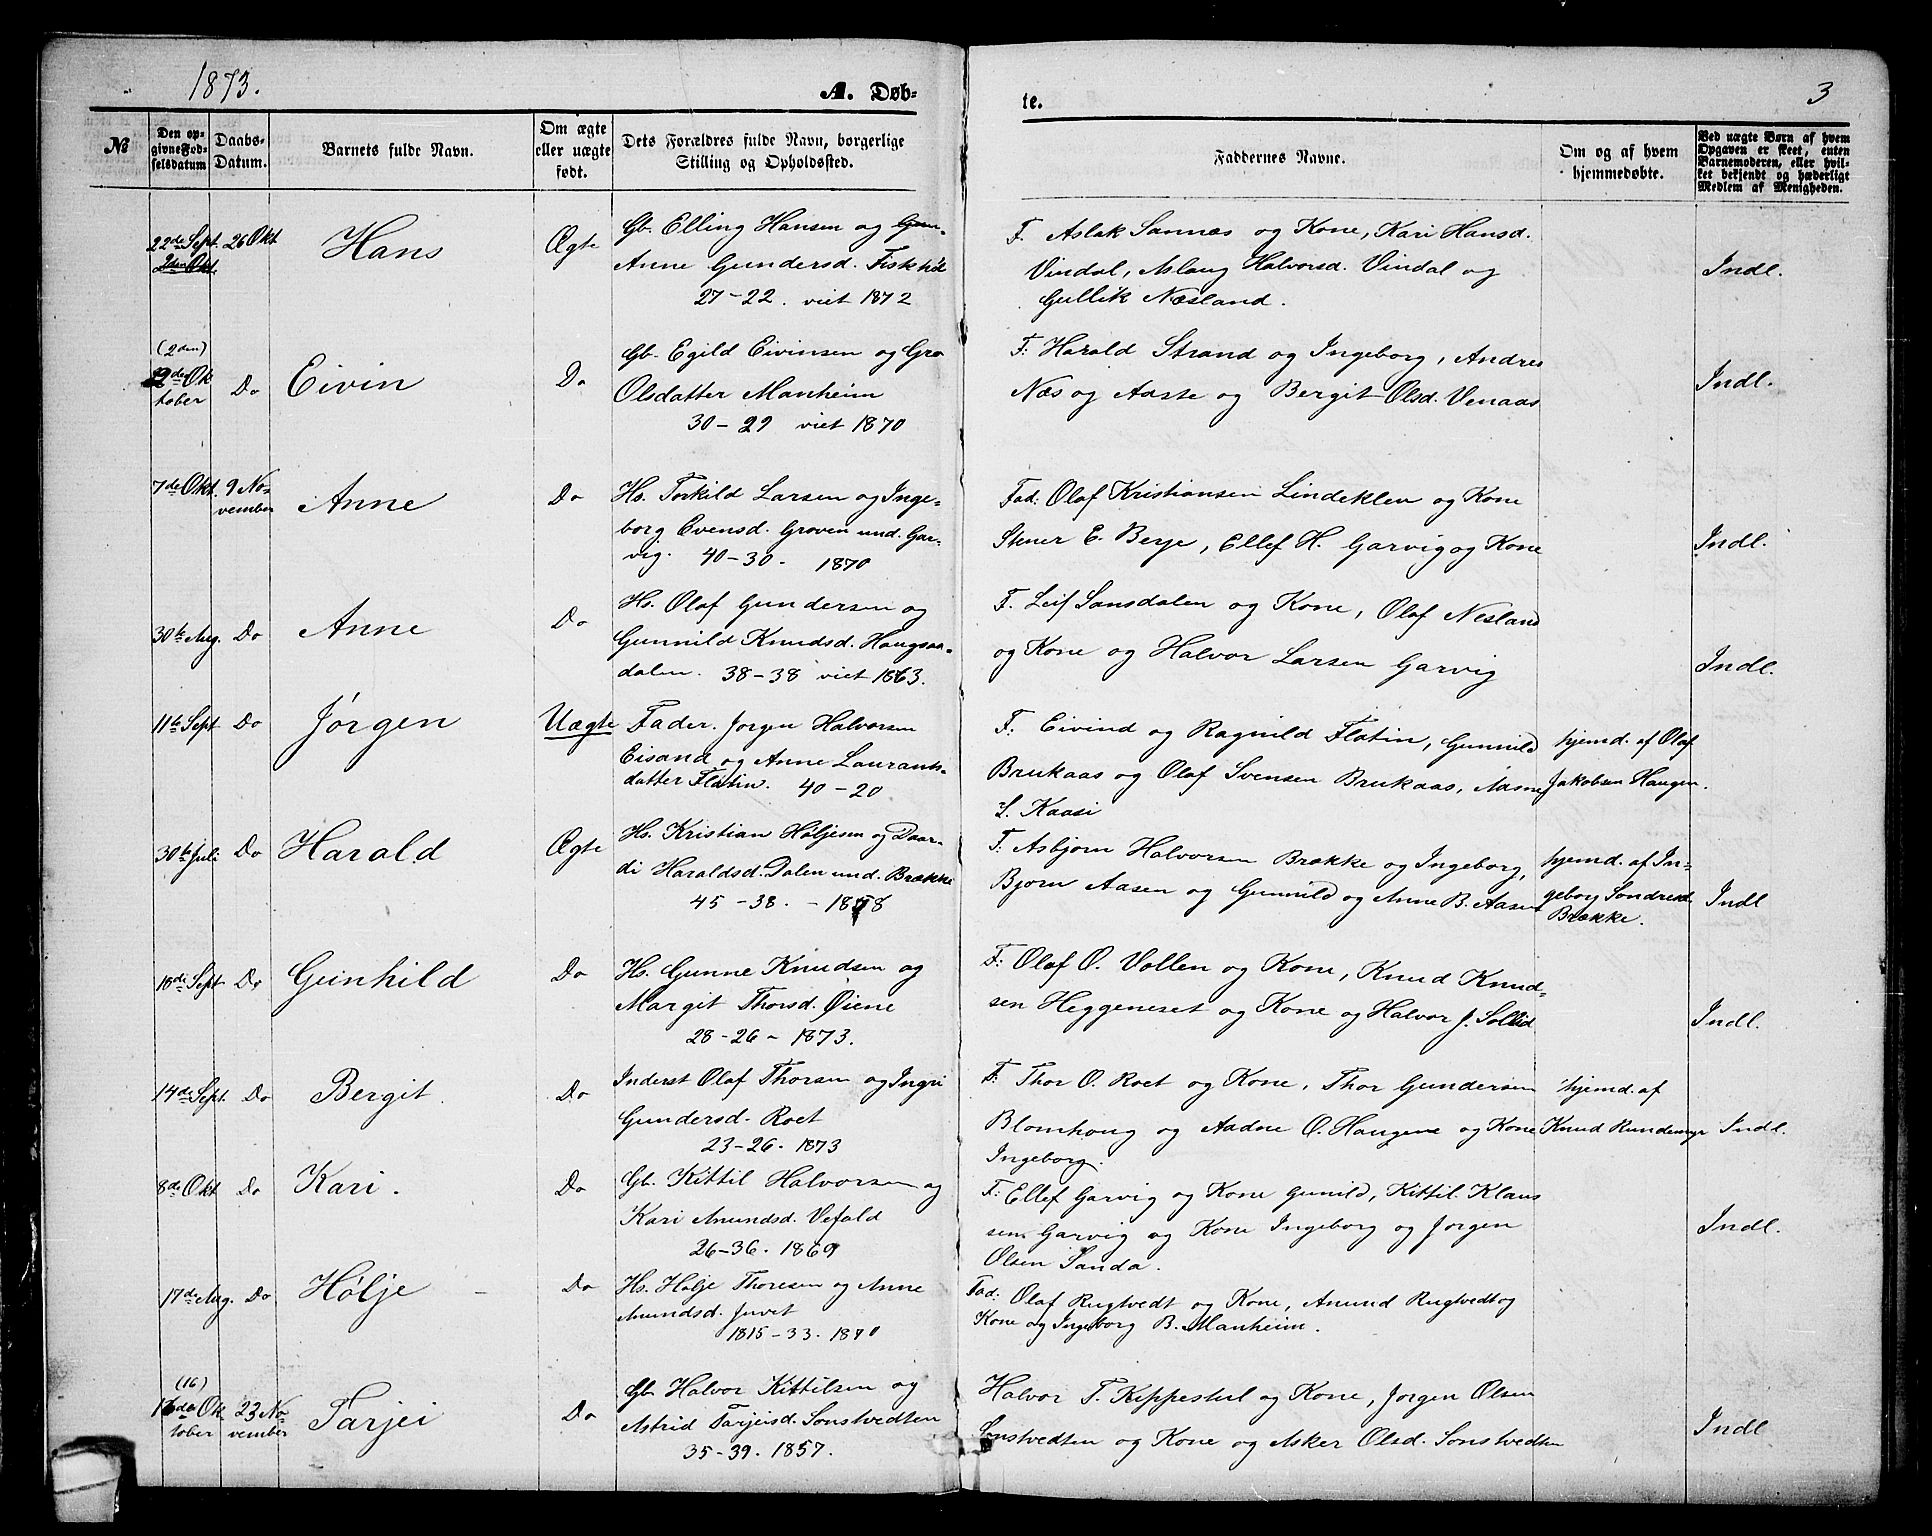 1873.
A. Døb-
te.
3
No
Den op-
givne Fød-
selsdatum
Daabs-
Datum.
Barnets fulde Navn.
Om ægte
eller uægte
født.
Dets Forældres fulde Navn, borgerlige
Stilling og Opholdssted.
Faddernes Navne.
Om og af hvem
hjemmedøbte.
Ved uægte Børn af hvem
Opgaven er skeet, enten
Barnemoderen, eller hvil-
ket bekjendt og hæderligt
Medlem af Menigheden.
22de Sept.
2den Okt.
26 Okt
Hans
Ægte
Gb. Elling Hansen og Gun-
Anne Gundersd. Fiskhøl
27-22. viet 1872
F. Aslak Sannæs og Kone, Kari Hansd.
Vindal, Aslaug Halvorsd. Vindal og
Gullik Næsland.
Indl.
(2den)
2den Ok
tober
Do
Eivin
Do
Gb. Egild Eivinsen og Gro
Olsdatter Manheim
30-29 viet 1870
F: Harald Strand og Ingeborg, Andres
Næs og Aaste og Bergit Olsd. Venaas
Indl.
7de Okt.
9 No-
vember
Anne
Do
Hs. Torkild Larsen og Inge-
borg Evensd. Groven und. Gar-
vig. 40-30. 1870
Fad: Olaf Kristiansen Lindeklev og Kone
Stener E. Berge, Ellef H. Garvig og Kone
Indl.
30te Aug.
Do
Anne
Do
Hs. Olaf Gundersen og
Gunnild Knudsd. Haugsaa-
dalen. 38-38 viet 1863.
F. Leif Sansdalen og Kone, Olaf Nesland
og Kone og Halvor Larsen Garvig
Indl.
11te Sept
Do
Jørgen
Uægte
Fader. Jørgen Halvorsen
Eisand og Anne Laurants-
datter Flatin. 40-20
F: Eivind og Ragnild Flatin, Gunnild
Brukaas og Olaf Svensen Brukaas, Aasne
L. Kaasi
hjemd. af Olaf
Jakobsen Haugen.
30te Juli
Do
Harald
Ægte
Hs. Kristian Høljesen og Daar-
di Haraldsd. Dalen und. Brække
45-38. - 1858
F: Asbjørn Halvorsen Brække og Ingeborg,
Bjorn Aasen og Gunnild og Anne B. Aasen
hjemd. af In-
geborg Sondresd.
Brække.
Indl
18de Sept
Do
Gunhild
Do
Hs. Gunne Knudsen og
Margit Thorsd. Øiene
28-26- 1873.
F: Olaf O. Vollen og Kone, Knud Knud-
sen Heggeneset og Kone og Halvor J. Sollid
Indl.
14de Sept.
Do
Bergit.
Do
Inderst Olaf Thorsen og Ingri
Gundersd. Roet
23-26. 1873
F: Thor O. Roet og Kone, Thor Gundersen
Blomhoug og Aadne O. Haugene og Kone
Ingeborg.
hjemd. af
Knud Rundemyr
Indl.
8de Okt
Do
Kari.
Do
Gb. Kittil Halvorsen og
Kari Anundsd. Vefald
26-36. 1869
F: Ellef Garvig og Kone Gunild, Kittil Klaus
sen Garvig og Kone Ingeborg og Jorgen
Olsen Sanda.
Indl.
17de Aug.
Do
Hølje
Do
Hs. Hølje Thoresen og Anne
Anundsd. Juvet
1815-33. 1870
Fad: Olaf Rugtvedt og Kone, Anund Rugtvedt og
Kone og Ingeborg B. Manheim.
(16)
16de Ok
tober
23 No-
vember
Tarjei
Do
Gb. Halvor Kittilsen og
Astrid Tarjeisd. Sonstvedten
35-39. 1857.
Halvor T. Kippestul og Kone, Jorgen Olsen
Sonstvedten og Kone og Asker Olsd. Sonstvedten
Indl